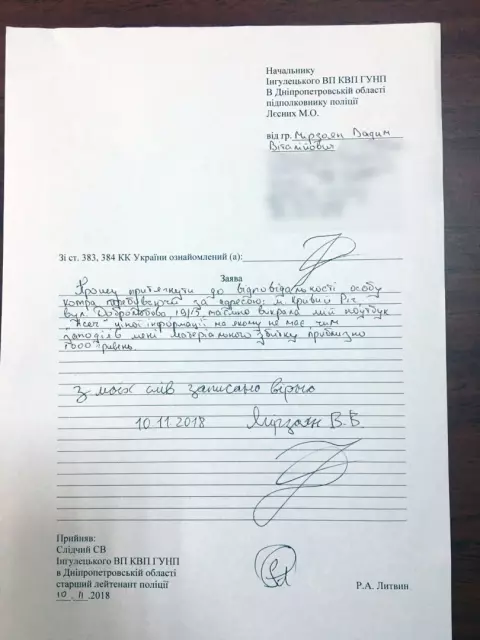 Начальнику
Інгулецького ВП КВП ГУНП
В Дніпропетровській області
підполковнику поліції
Лєсних М.О.
від гр. Мірзоян Вадим
Віталійович
Зі ст. 383, 384 КК України ознайомлений (а):
Заява
Прошу притягнути до відповідальності особу
котра перебуваючи за адресою: м Кривий Ріг
вул. Добролюбова, 19/15 таємно викрала мій ноутбук
"Acer" цінної інформації на якому не має, чим
заподіяв мені матеріального збитку приблизно
7000 гривень.
З моїх слів записано вірно
10.11.2018 Мірзоян В.В.
Прийняв:
Слідчий СВ
Інгулецького ВП КВП ГУНП
в Дніпропетровській області
старший лейтенант поліції
10 . 11 .2018 Р.А. Литвин